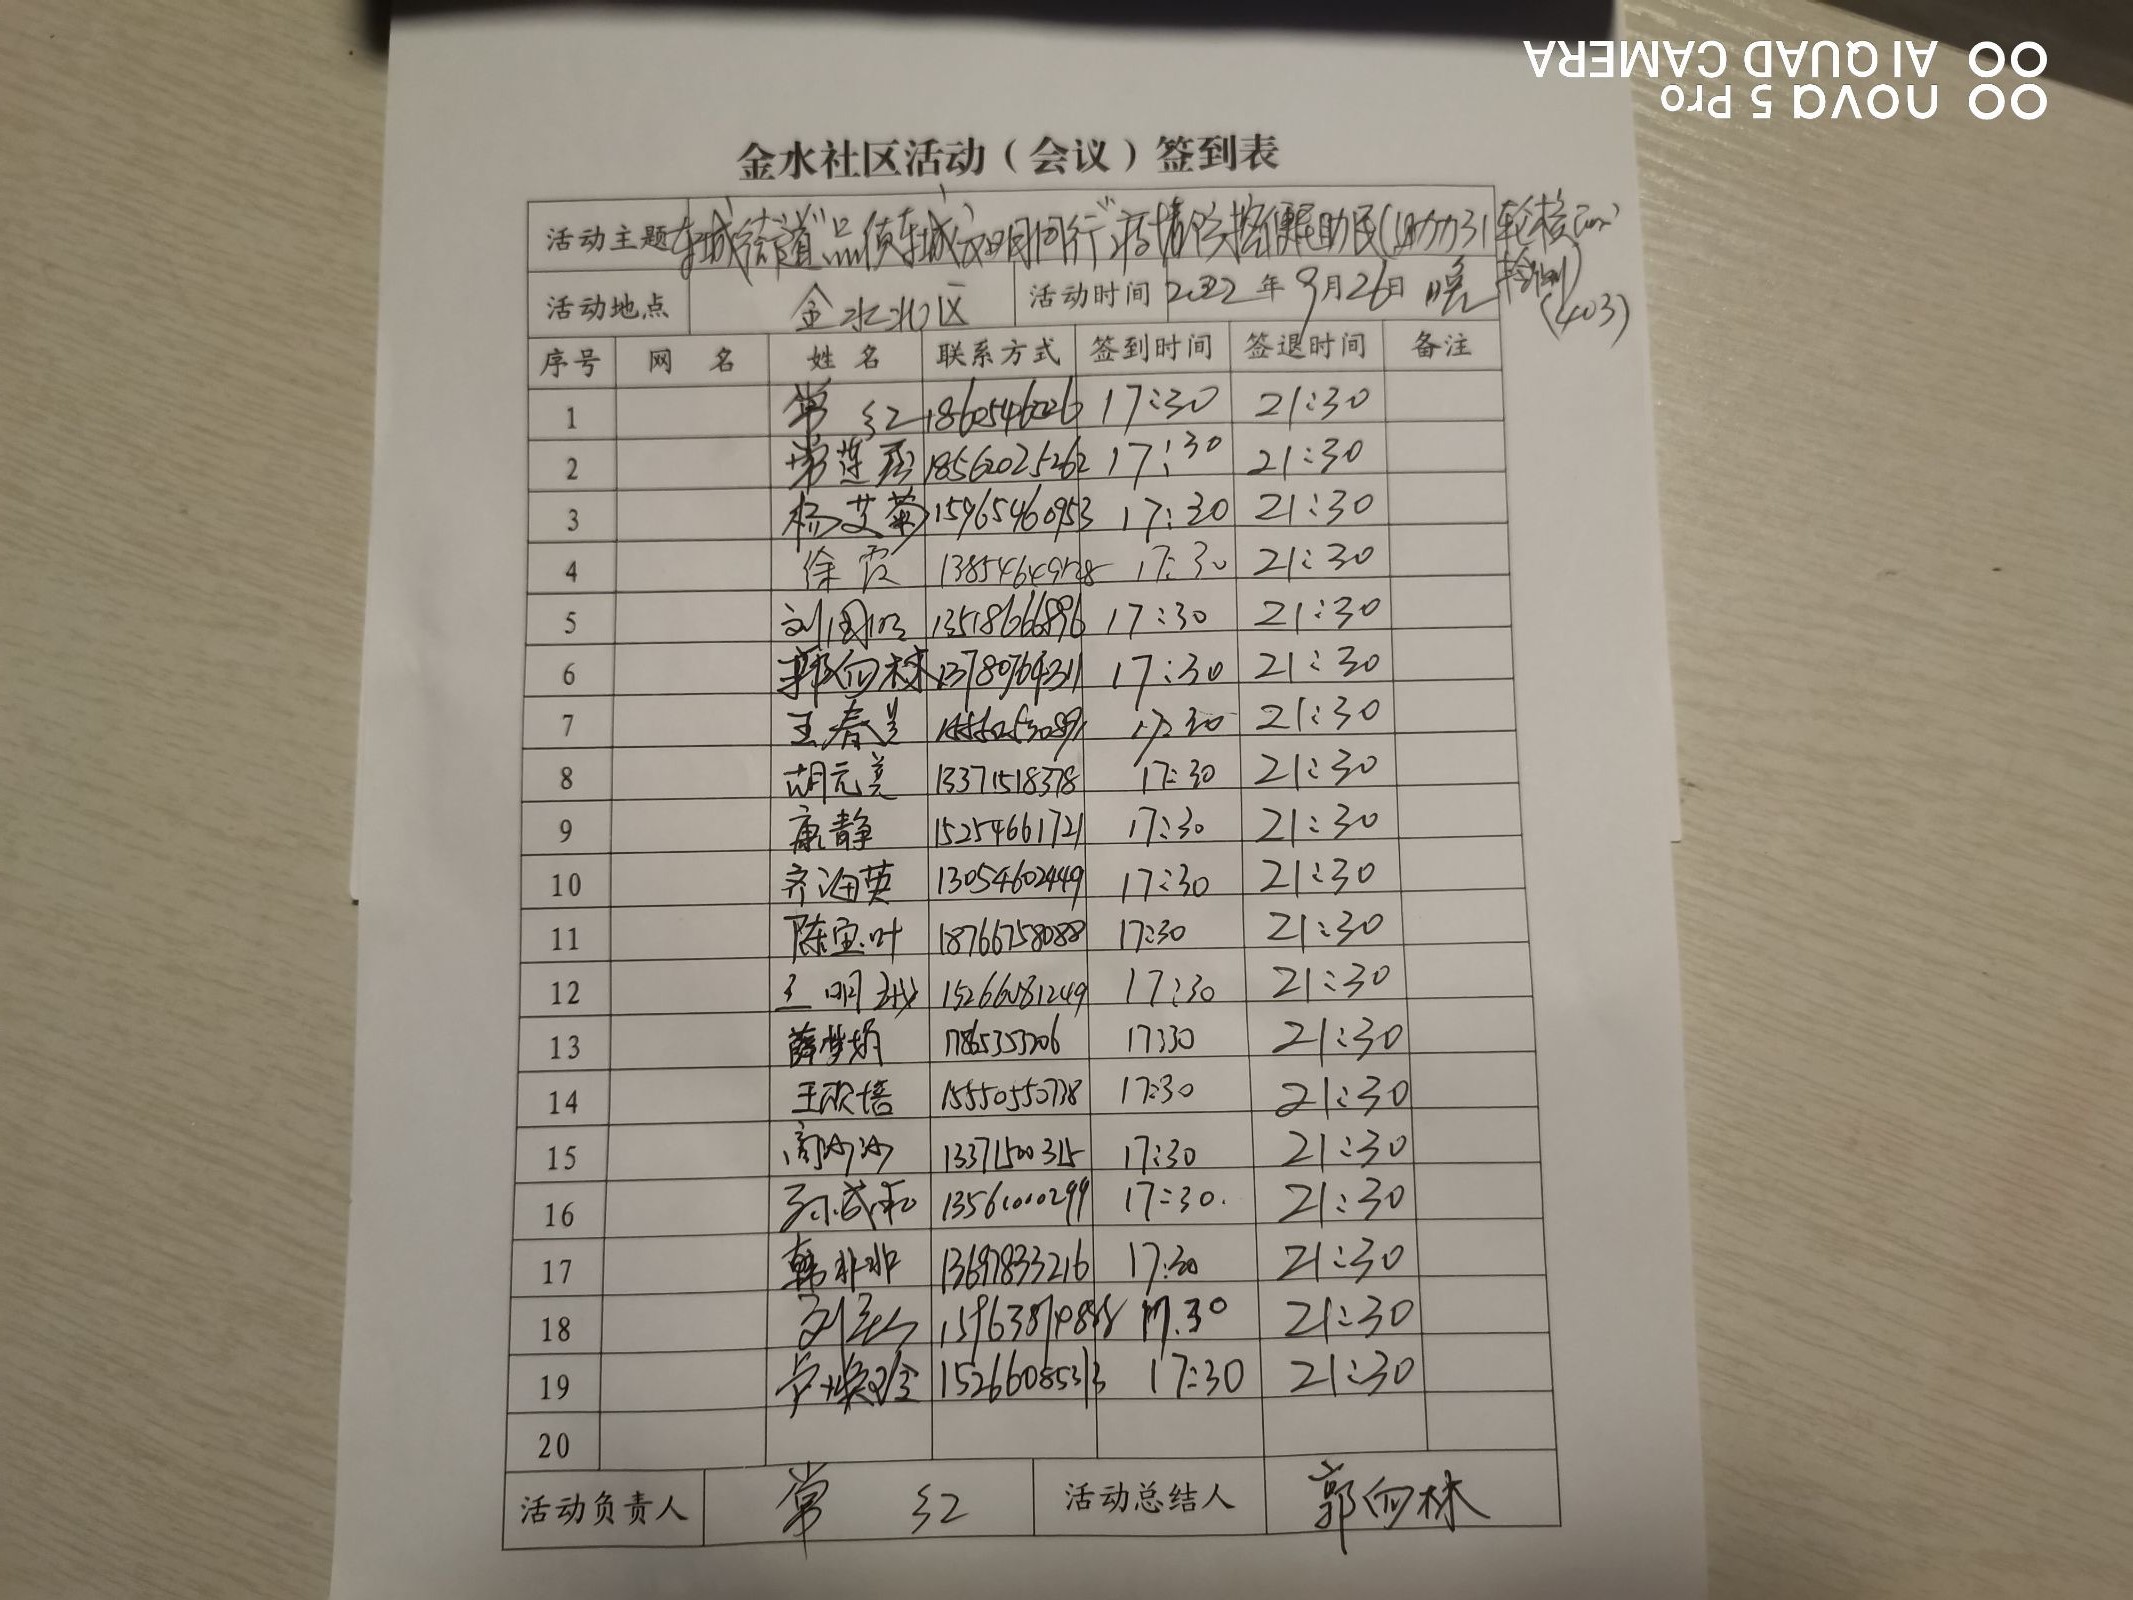 AI QUAD CAMERA
nova 5 Pro
金水社区活动（会议）签到表
活动主题 东城街道"品质东城 文明同行"疫情防控便民助民(助力31轮核酸
检测)
(403)
活动地点 金水北区 活动时间 2022年9月26日 晚
序号 网 名 姓 名 联系方式 签到时间 签退时间 备注
1 常红 17:30 21:30
2 常莲 18562025262 17:30 21:30
3 杨艾菊 15965460953 17:30 21:30
4 徐霞 17:30 21:30
5 刘国 13518666896 17:30 21:30
6 郭向林 13780764311 17:30 21:30
7 王春美 17:30 21:30
8 胡元美 13371518378 17:30 21:30
9 康静 15254661721 17:30 21:30
10 齐海英 13054602449 17:30 21:30
11 陈宝叶 18766758088 17:30 21:30
12 王明 15266081249 17:30 21:30
13 薛梦娟 17:30 21:30
14 王欣培 15550550738 17:30 21:30
15 13371500315 17:30 21:30
16 孙 13561000299 17:30 21:30
17 韩非非 13697833216 17:30 21:30
18 刘 17:30 21:30
19 15266085313 17:30 21:30
20
活动负责人 常红 活动总结人 郭向林